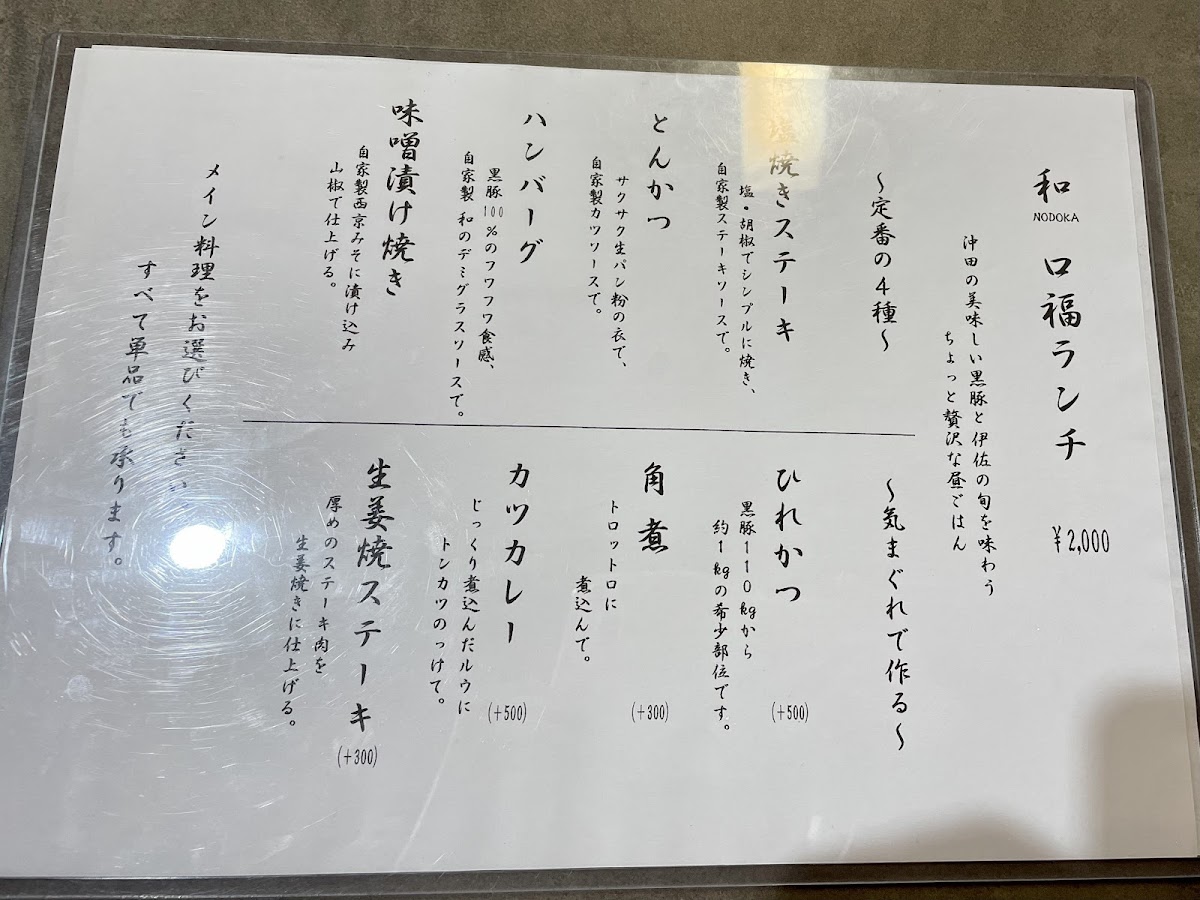 和
NODOKA
口福ランチ
¥2,000
沖田の美味しい黒豚と伊佐の旬を味わう
ちょっと贅沢な昼ごはん
～定番の4種～
塩焼きステーキ
塩・胡椒でシンプルに焼き、
自家製ステーキソースで。
とんかつ
サクサク生パン粉の衣で、
自家製カツソースで。
ハンバーグ
黒豚100%のフワフワ食感、
自家製 和のデミグラスソースで。
味噌漬け焼き
自家製西京みそに漬け込み
山椒で仕上げる。
～気まぐれで作る～
ひれかつ
(+500)
黒豚110kgから
約1kgの希少部位です。
角煮
(+300)
トロットロに
煮込んで。
カツカレー
(+500)
じっくり煮込んだルウに
トンカツのっけて。
生姜焼ステーキ
(+300)
厚めのステーキ肉を
生姜焼きに仕上げる。
メイン料理をお選びください
すべて単品でも承ります。